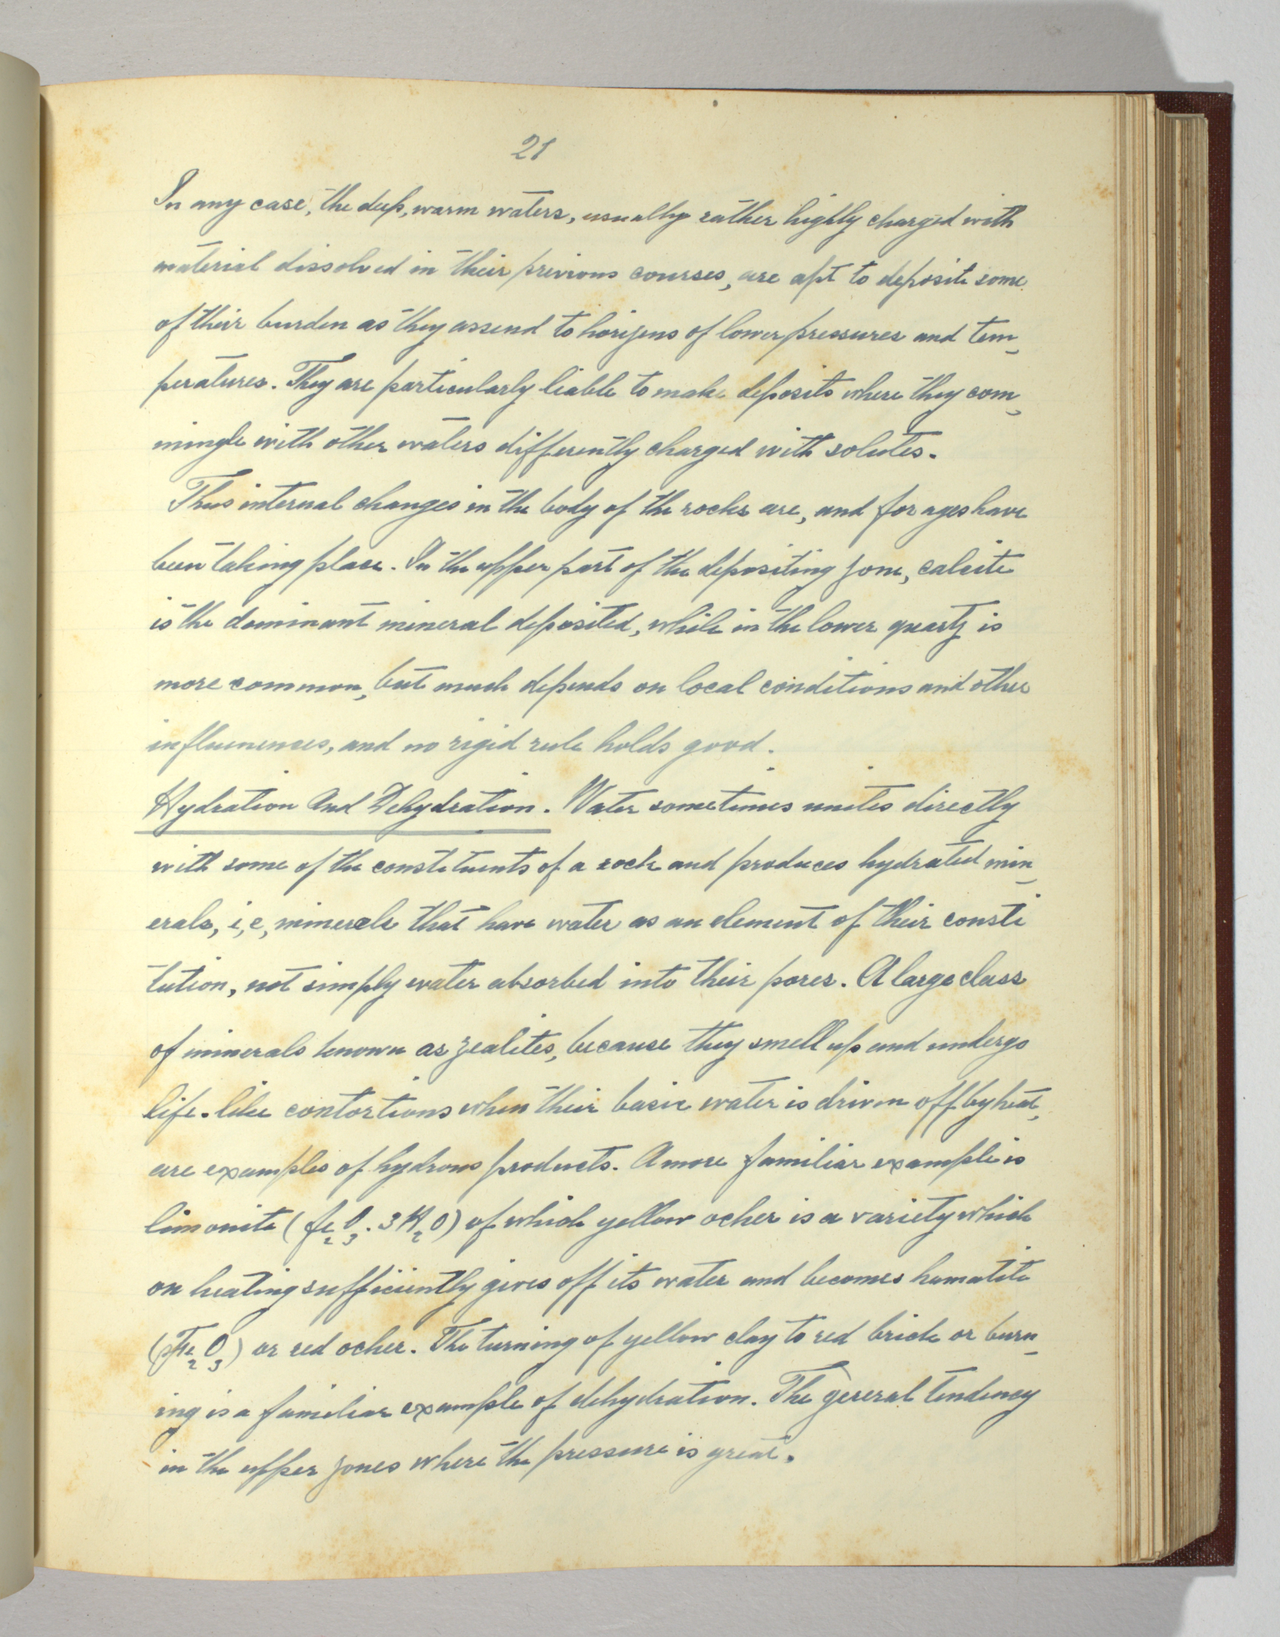 21
In any case, the deep, warm waters, usually rather highly charged with
material dissolved in their previous courses, are apt to deposit some
of their burden as they assend to horizens of lower pressures and tem-
peratures. They are particularly liable to make deposits where they com-
mingle with other waters differently charged with solutes.
Thus internal changes in the body of the rocks are, and for ages have
been taking place. In the upper part of the depositing zone, calcite
is the dominant mineral deposited, while in the lower quartz is
more common, but much depends on local conditions and other
influenenses, and no rigid rule holds good.
Hydration And Dehydration. Water sometimes unites directly
with some of the constetuents of a rock and produces hydrated min-
erals, i,e, minerals that have water as an element of their consti
tution, not simply water absorbed into their pores. A large class
of minerals known as zealites, because they smell up and undergo
life-like contortions when their basic water is driven off by heat,
are examples of hydrous products. A more familiar example is
limonite (fe2O3. 3H2O) of which yellow ocher is a variety which
on heating sufficiently gives off its water and becomes hematite
(Fe2O3) or red ocher. The turning of yellow clay to red brick or burn-
ing is a familiar example of dehydration. The general tendency
in the upper zones where the pressure is great.